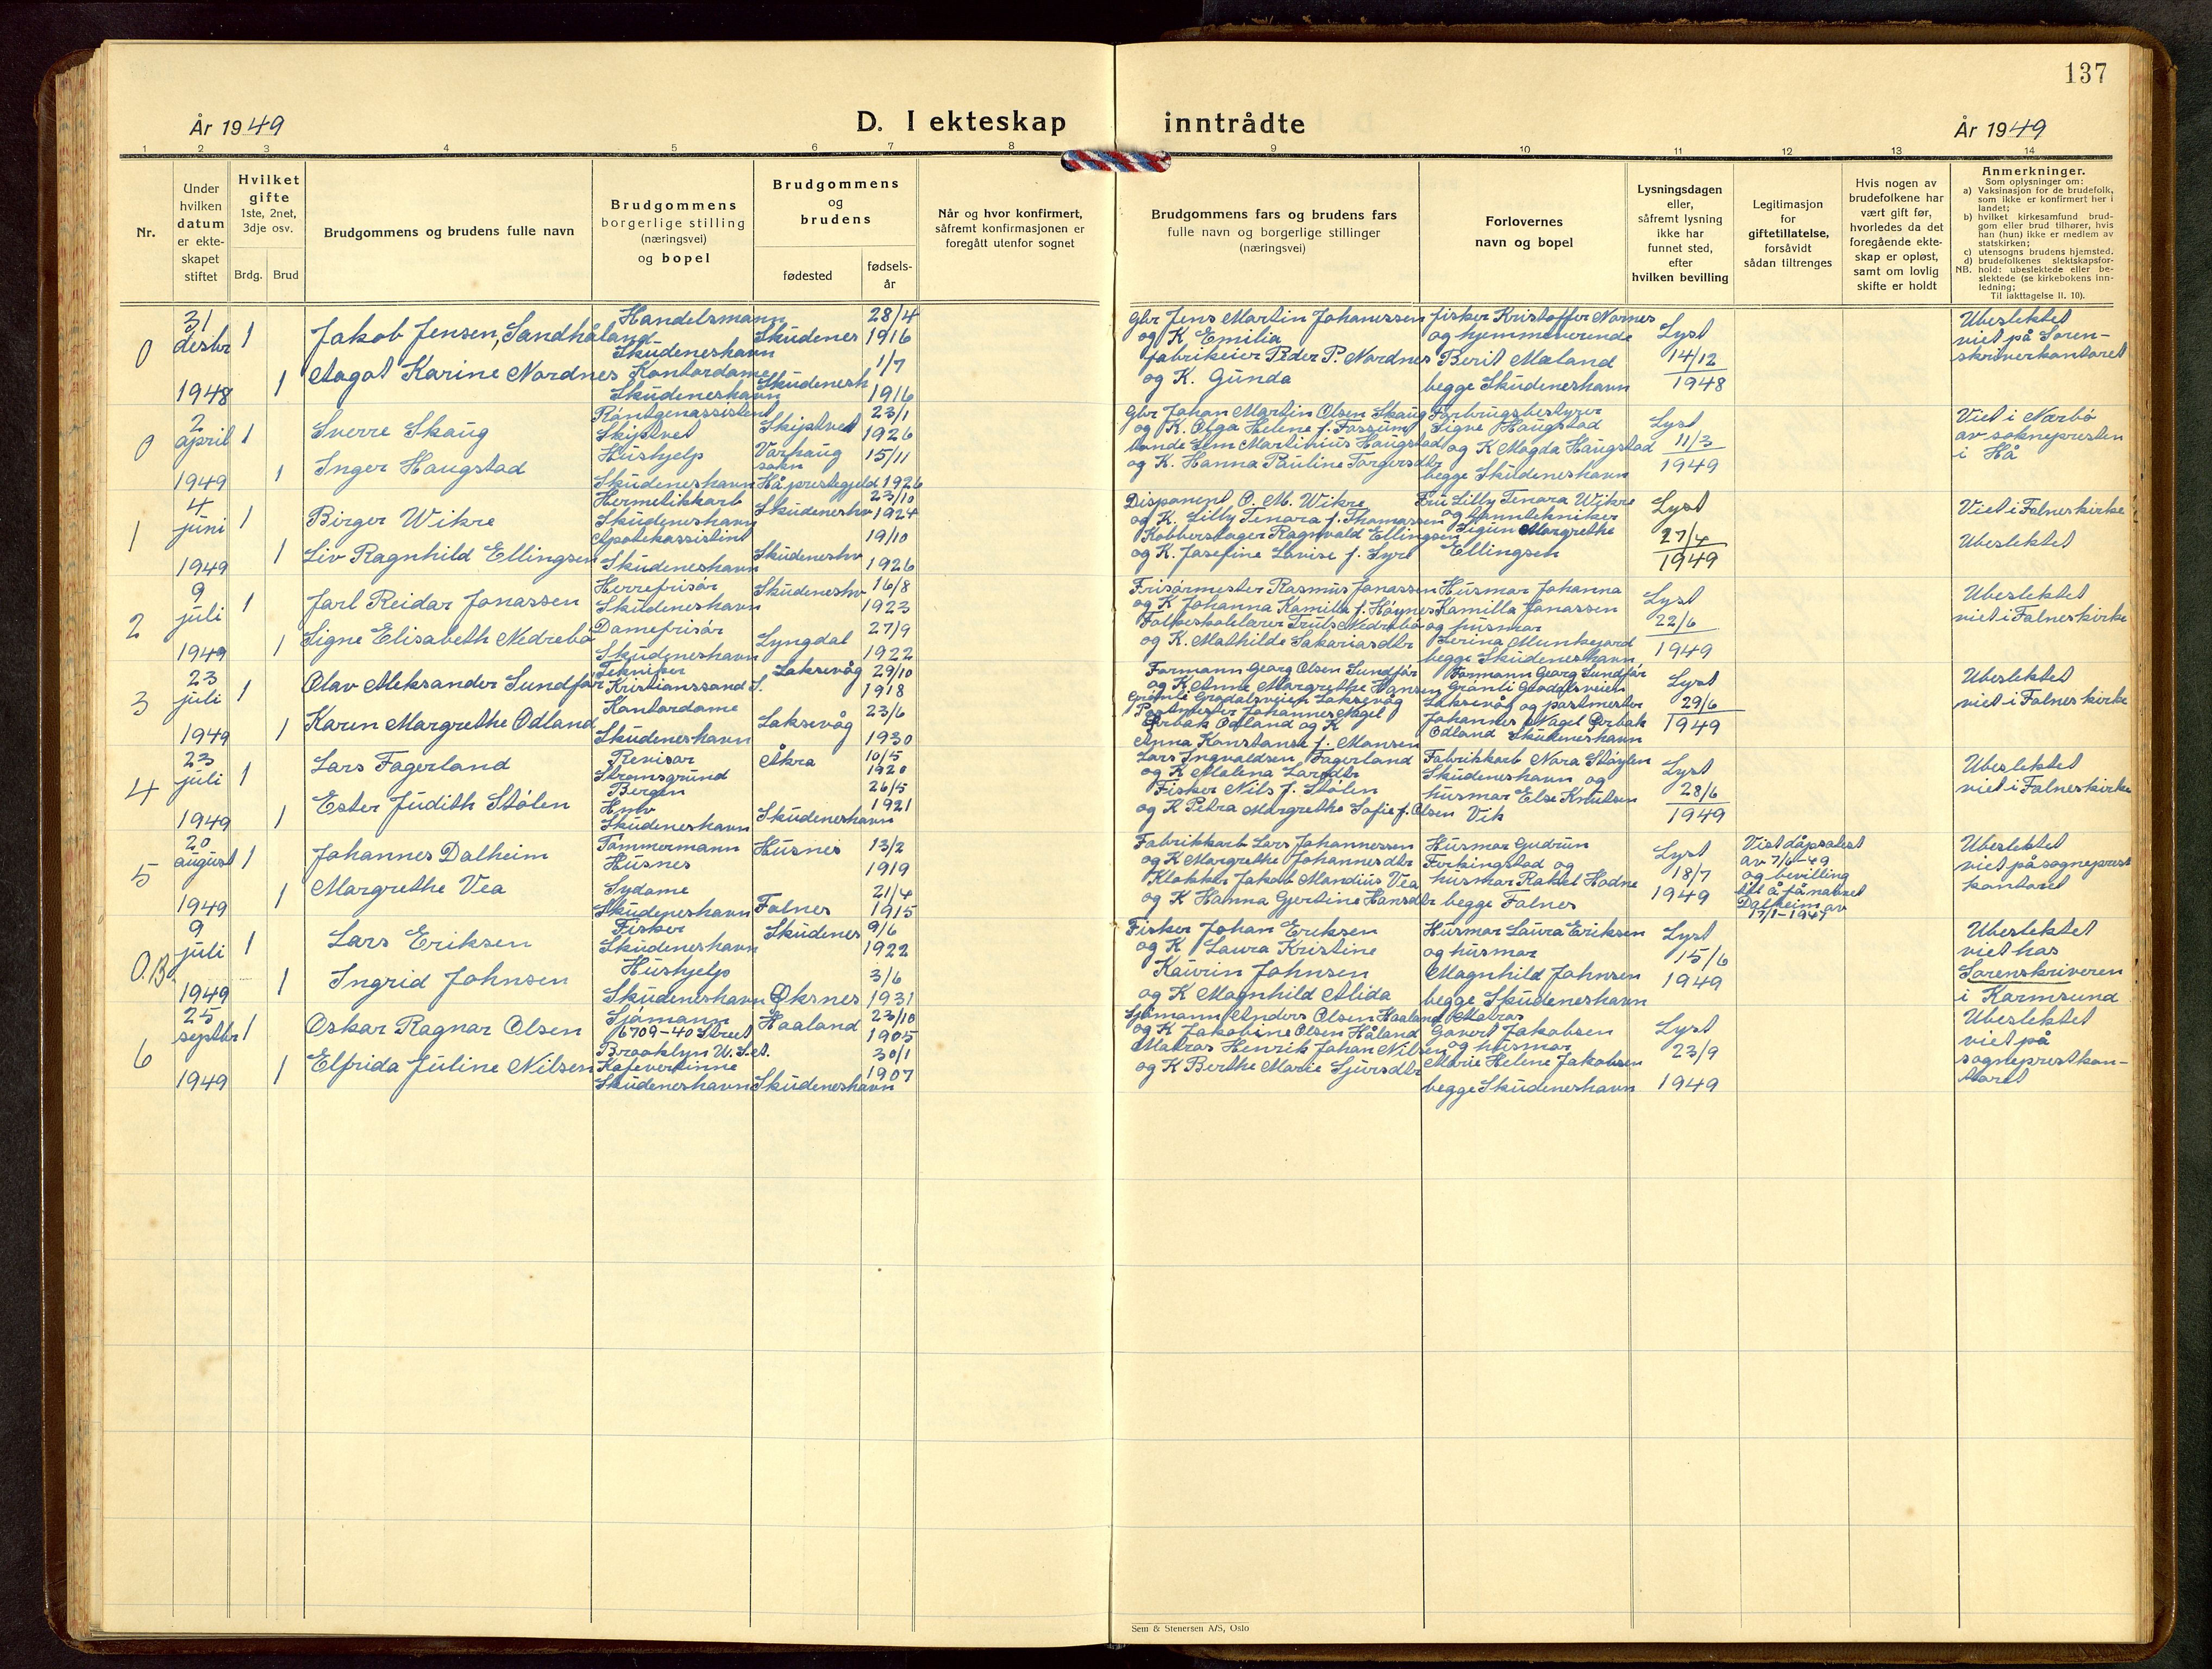 137
År 1949
D. I ekteskap inntrådte
År 1949
1 2 3 4 5 6 7 8 9 10 11 12 13 14
Nr.
Under
hvilken
datum
er ekte-
skapet
stiftet
Hvilket
gifte
1ste, 2net,
3dje osv.
Brdg. Brud
Brudgommens og brudens fulle navn
Brudgommens
borgerlige stilling
(næringsvei)
og bopel
Brudgommens
og
brudens
fødested
fødsels-
år
Når og hvor konfirmert,
såfremt konfirmasjonen er
foregått utenfor sognet
Brudgommens fars og brudens fars
fulle navn og borgerlige stillinger
(næringsvei)
Forlovernes
navn og bopel
Lysningsdagen
eller,
såfremt lysning
ikke har
funnet sted,
efter
hvilken bevilling
Legitimasjon
for
giftetillatelse,
forsåvidt
sådan tiltrenges
Hvis nogen av
brudefolkene har
vært gift før,
hvorledes da det
foregående ekte-
skap er opløst,
samt om lovlig
skifte er holdt
Anmerkninger.
Som oplysninger om:
a) Vaksinasjon for de brudefolk,
som ikke er konfirmert her i
landet;
b) hvilket kirkesamfund brud-
gom eller brud tilhører, hvis
han (hun) ikke er medlem av
statskirken;
c) utensogns brudens hjemsted.
d) brudefolkenes slektskapsfor-
NB. hold: ubeslektede eller be-
slektede (se kirkebokens inn-
ledning;
Til iakttagelse II. 10).
0
31
desbr
1948
1
1
Jakob Jensen, Sandhåland
Aagot Karine Nordnes
Handelsmann
Skudeneshavn
Kontordame
Skudeneshavn
Skudenes
Skudenesh
28/4
1916
1/7
1916
Gbr Jens Martin Johanessen
og K. Emilia
fabrikeier Peder P. Nordnes
og K. Gunda
fisker Kristoffer Nornes
og hjemmeverende
Berit Mæland
begge Skudeneshavn
Lyst
14/12
1948
Ubeslektet
viet på Soren-
skriverkontoret
0
2
april
1949
1
1
Sverre Skaug
Inger Haugstad
Røntgenassistent
Skiptvet
Hushjelp
Skudeneshavn
Skiptvet
Varhaug
sokn
Hå prestegjeld
23/1
1926
15/11
1926
Gbr Johan Martin Olsen Skaug
og K. Olga Helene f. Fossum
Martinius Haugstad
og K. Hanna Pauline Torgersdtr
Forbrugsbestyrer
Signe Haugstad
og K Magda Haugstad
begge Skudeneshavn
Lyst
11/3
1949
Viet i Nærbø
av soknepresten
i Hå
1
4
juni
1949
1
1
Birger Wikre
Liv Ragnhild Ellingsen
Hermetikkarb
Skudeneshavn
Apotekassistent
Skudeneshavn
Skudeneshv
Skudeneshv
23/10
1924
19/10
1926
Disponent O. M. Wikre
og K. Lilly Tenora f. Thomassen
Kobberslager Ragnvald Ellingsen
og K. Josefine Lovise f. Syre
Fru Lilly Tenora Wikre
og tanntekniker
Sigun Margrethe
Ellingsen
Lyst
27/4
1949
Viet i Falnes kirke
Ubeslektet
2
9
juli
1949
1
1
Jarl Reidar Jonassen
Signe Elisabeth Nedrebø
Herrefrisør
Skudeneshavn
Damefrisør
Skudeneshavn
Skudeneshv
Lyngdal
16/8
1923
27/9
1922
Frisørmester Rasmus Jonassen
og K Johanna Kamilla f. Høynes
Folkeskolelærer Truls Nedrebø
og K. Mathilde Sakariasdtr
Husmor Johanna
Kamilla Jonassen
og husmor
Serina Munkejord
begge Skudeneshavn
Lyst
22/6
1949
Ubeslektet
viet i Falnes kirke
3
23
juli
1949
1
1
Olav Aleksander Sundfør
Karen Margrethe Odland
Tekniker
Kristianssand S.
Kontordame
Skudeneshavn
Laksevåg
Laksevåg
29/10
1918
23/6
1930
Formann Georg Olsen Sundfør
og K Anne Margrethe Hansen
Granli Gradalsveien Laksevåg
Postmester Johannes Nagel
Ørbæk Odland og K
Anna Konstanse f. Monsen
Formann Georg Sundfør
Granli Gradalsveien
Laksevåg og postmester
Johannes Nagel Ørbæk
Odland Skudeneshavn
Lyst
29/6
1949
Ubeslektet
viet i Falnes kirke
4
23
juli
1949
1
1
Lars Fagerland
Ester Judith Stølen
Revisor
Strømsgrund
Bergen
Hmv
Skudeneshavn
Åkra
Skudeneshavn
10/5
1920
26/5
1921
Lars Ingvaldsen Fagerland
og K Malena Larsdtr
Fisker Nils J. Stølen
og K Petra Margrethe Sofie f. Olsen
Fabrikkarb Nora Støylen
Skudeneshavn og
husmor Else Knutsen
Vik
Lyst
28/6
1949
Ubeslektet
viet i Falnes kirke
5
20
august
1949
1
1
Johannes Dalheim
Margrethe Vea
Tømmermann
Husnes
Sydame
Skudeneshavn
Husnes
Falnes
13/2
1919
21/4
1915
Fabrikkarb Lars Johannessen
og K Margrethe Johannesdtr
Klokker Jakob Mandius Vea
og K Hanna Gjertine Hansdtr
Husmor Gudrun
Ferkingstad og
husmor Rakel Hodne
begge Falnes
Lyst
18/7
1949
Vist dåpsatest
av 7/6-49
og bevilling
til å få navnet
Dalheim av
17/1-1947
Ubeslektet
viet på sogneprest
kontoret
O.B.
9
juli
1949
1
1
Lars Eriksen
Ingrid Johnsen
Fisker
Skudeneshavn
Hushjelp
Skudeneshavn
Skudenes
Øksnes
9/6
1922
3/6
1931
Fisker Johan Eriksen
og K Laura Kristine
Kaurin Johnsen
og K Magnhild Alida
Husmor Laura Eriksen
og husmor
Magnhild Johnsen
begge Skudeneshavn
Lyst
15/6
1949
Ubeslektet
viet hos
Sorenskriveren
i Karmsund
6
25
septbr
1949
1
1
Oskar Ragnar Olsen
Elfrida Juline Nilsen
Sjømann
6709-40 Street
Brooklyn U.S.A.
Kafevertinne
Skudeneshavn
Haaland
Skudeneshavn
23/10
1905
30/1
1907
Sjømann Anders Olsen Haaland
og K Jakobine Olsen Håland
Matros Henrik Johan Nilsen
og K Berthe Marie Sjursdtr
Matros
Govert Jakobsen
og husmor
Marie Helene Jakobsen
begge Skudeneshavn
Lyst
23/9
1949
Ubeslektet
viet på
sogneprestkon-
toret
Sem & Stenersen A/S, Oslo